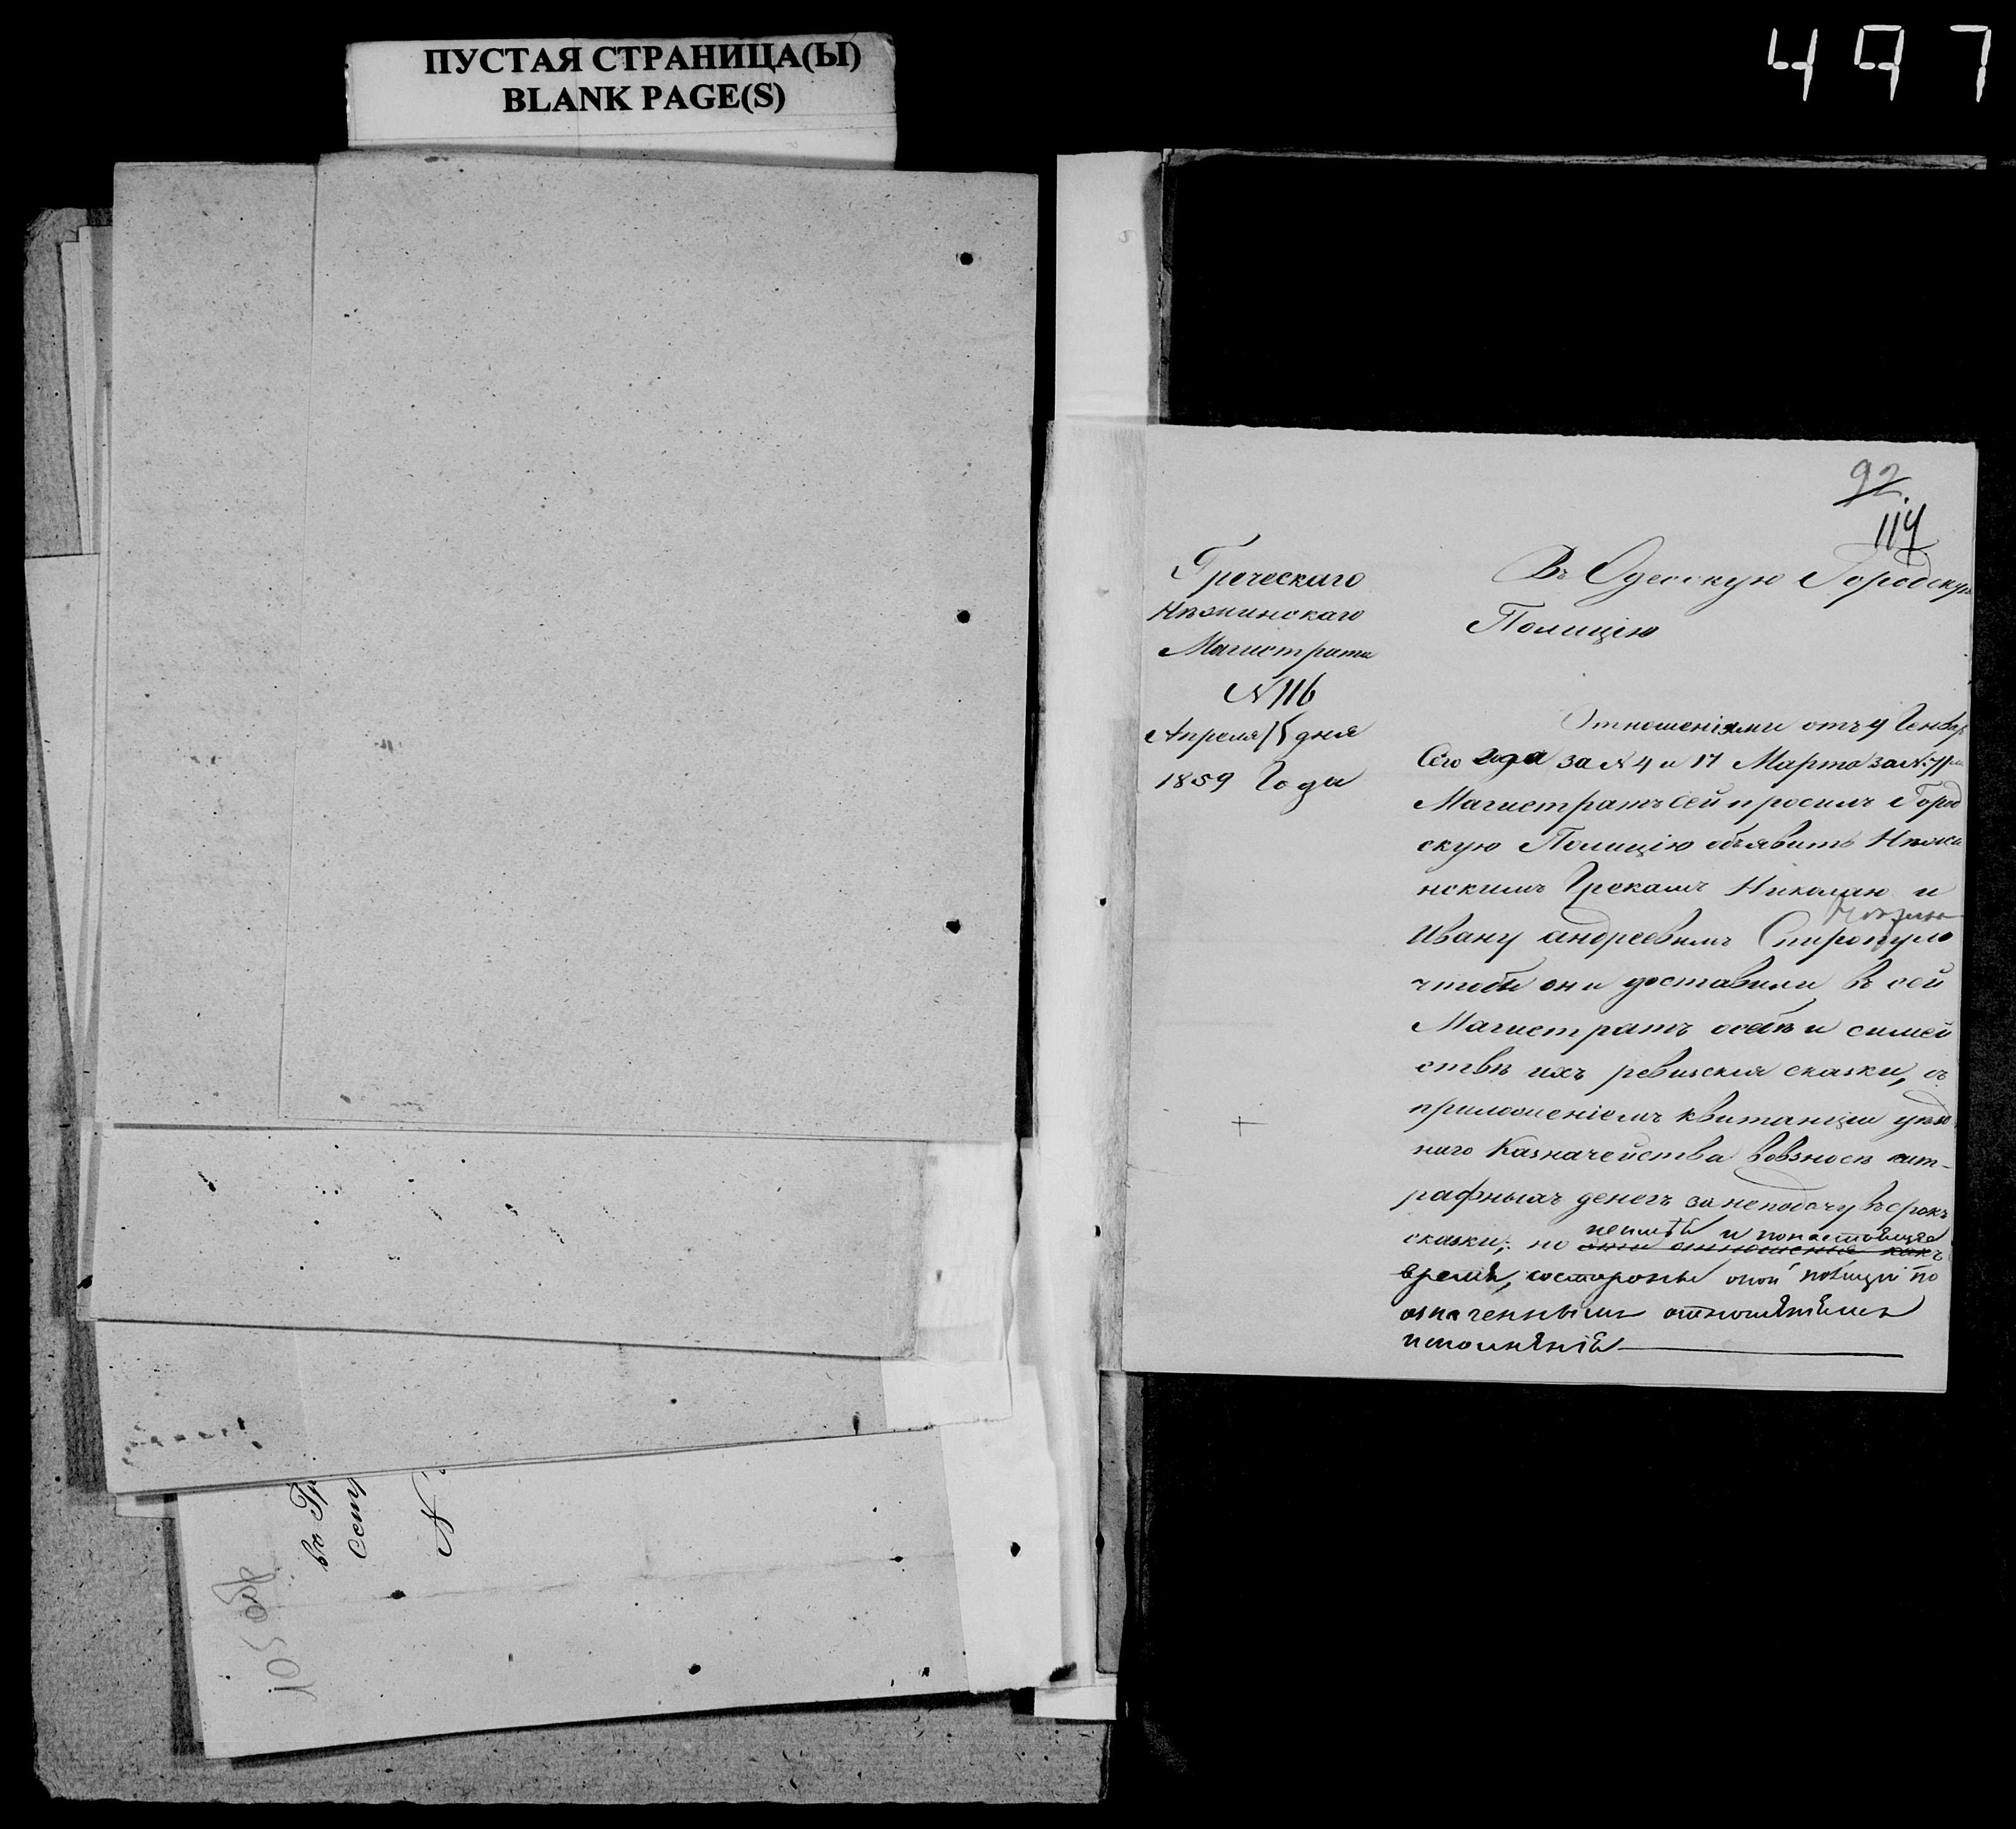 ПУСТАЯ СТРАНИЦА(Ы)
BLANK PAGE(S)
497
92
114
Греческаго
Нѣжинскаго
Магистрата
N 116
Апреля 15 дня
1859 Года
Въ Одесскую Городскую
Полицію
Отношеніями отъ 9 Генвар
Сего года за N 4 и 17 Марта за N
Магистратъ сей просилъ Город
скую Полицію объявить Нѣжи
нскимъ Грекамъ Николаю и
Ивану андреевымъ Спиропуло
чтобы они доставили въ сей
Магистратъ о себѣ и симей
ствѣ ихъ ревизскія сказки, съ
приложеніемъ квитанціи уѣзд
наго Казначейства во взносѣ шт-
рафныхъ денегъ за неподачу въ срокъ
и понастоящее
сказки; но
время, состороны оной полиціи по
означеннымъ отношѣніямъ
исполнѣнія
въ Гр
N
105 об